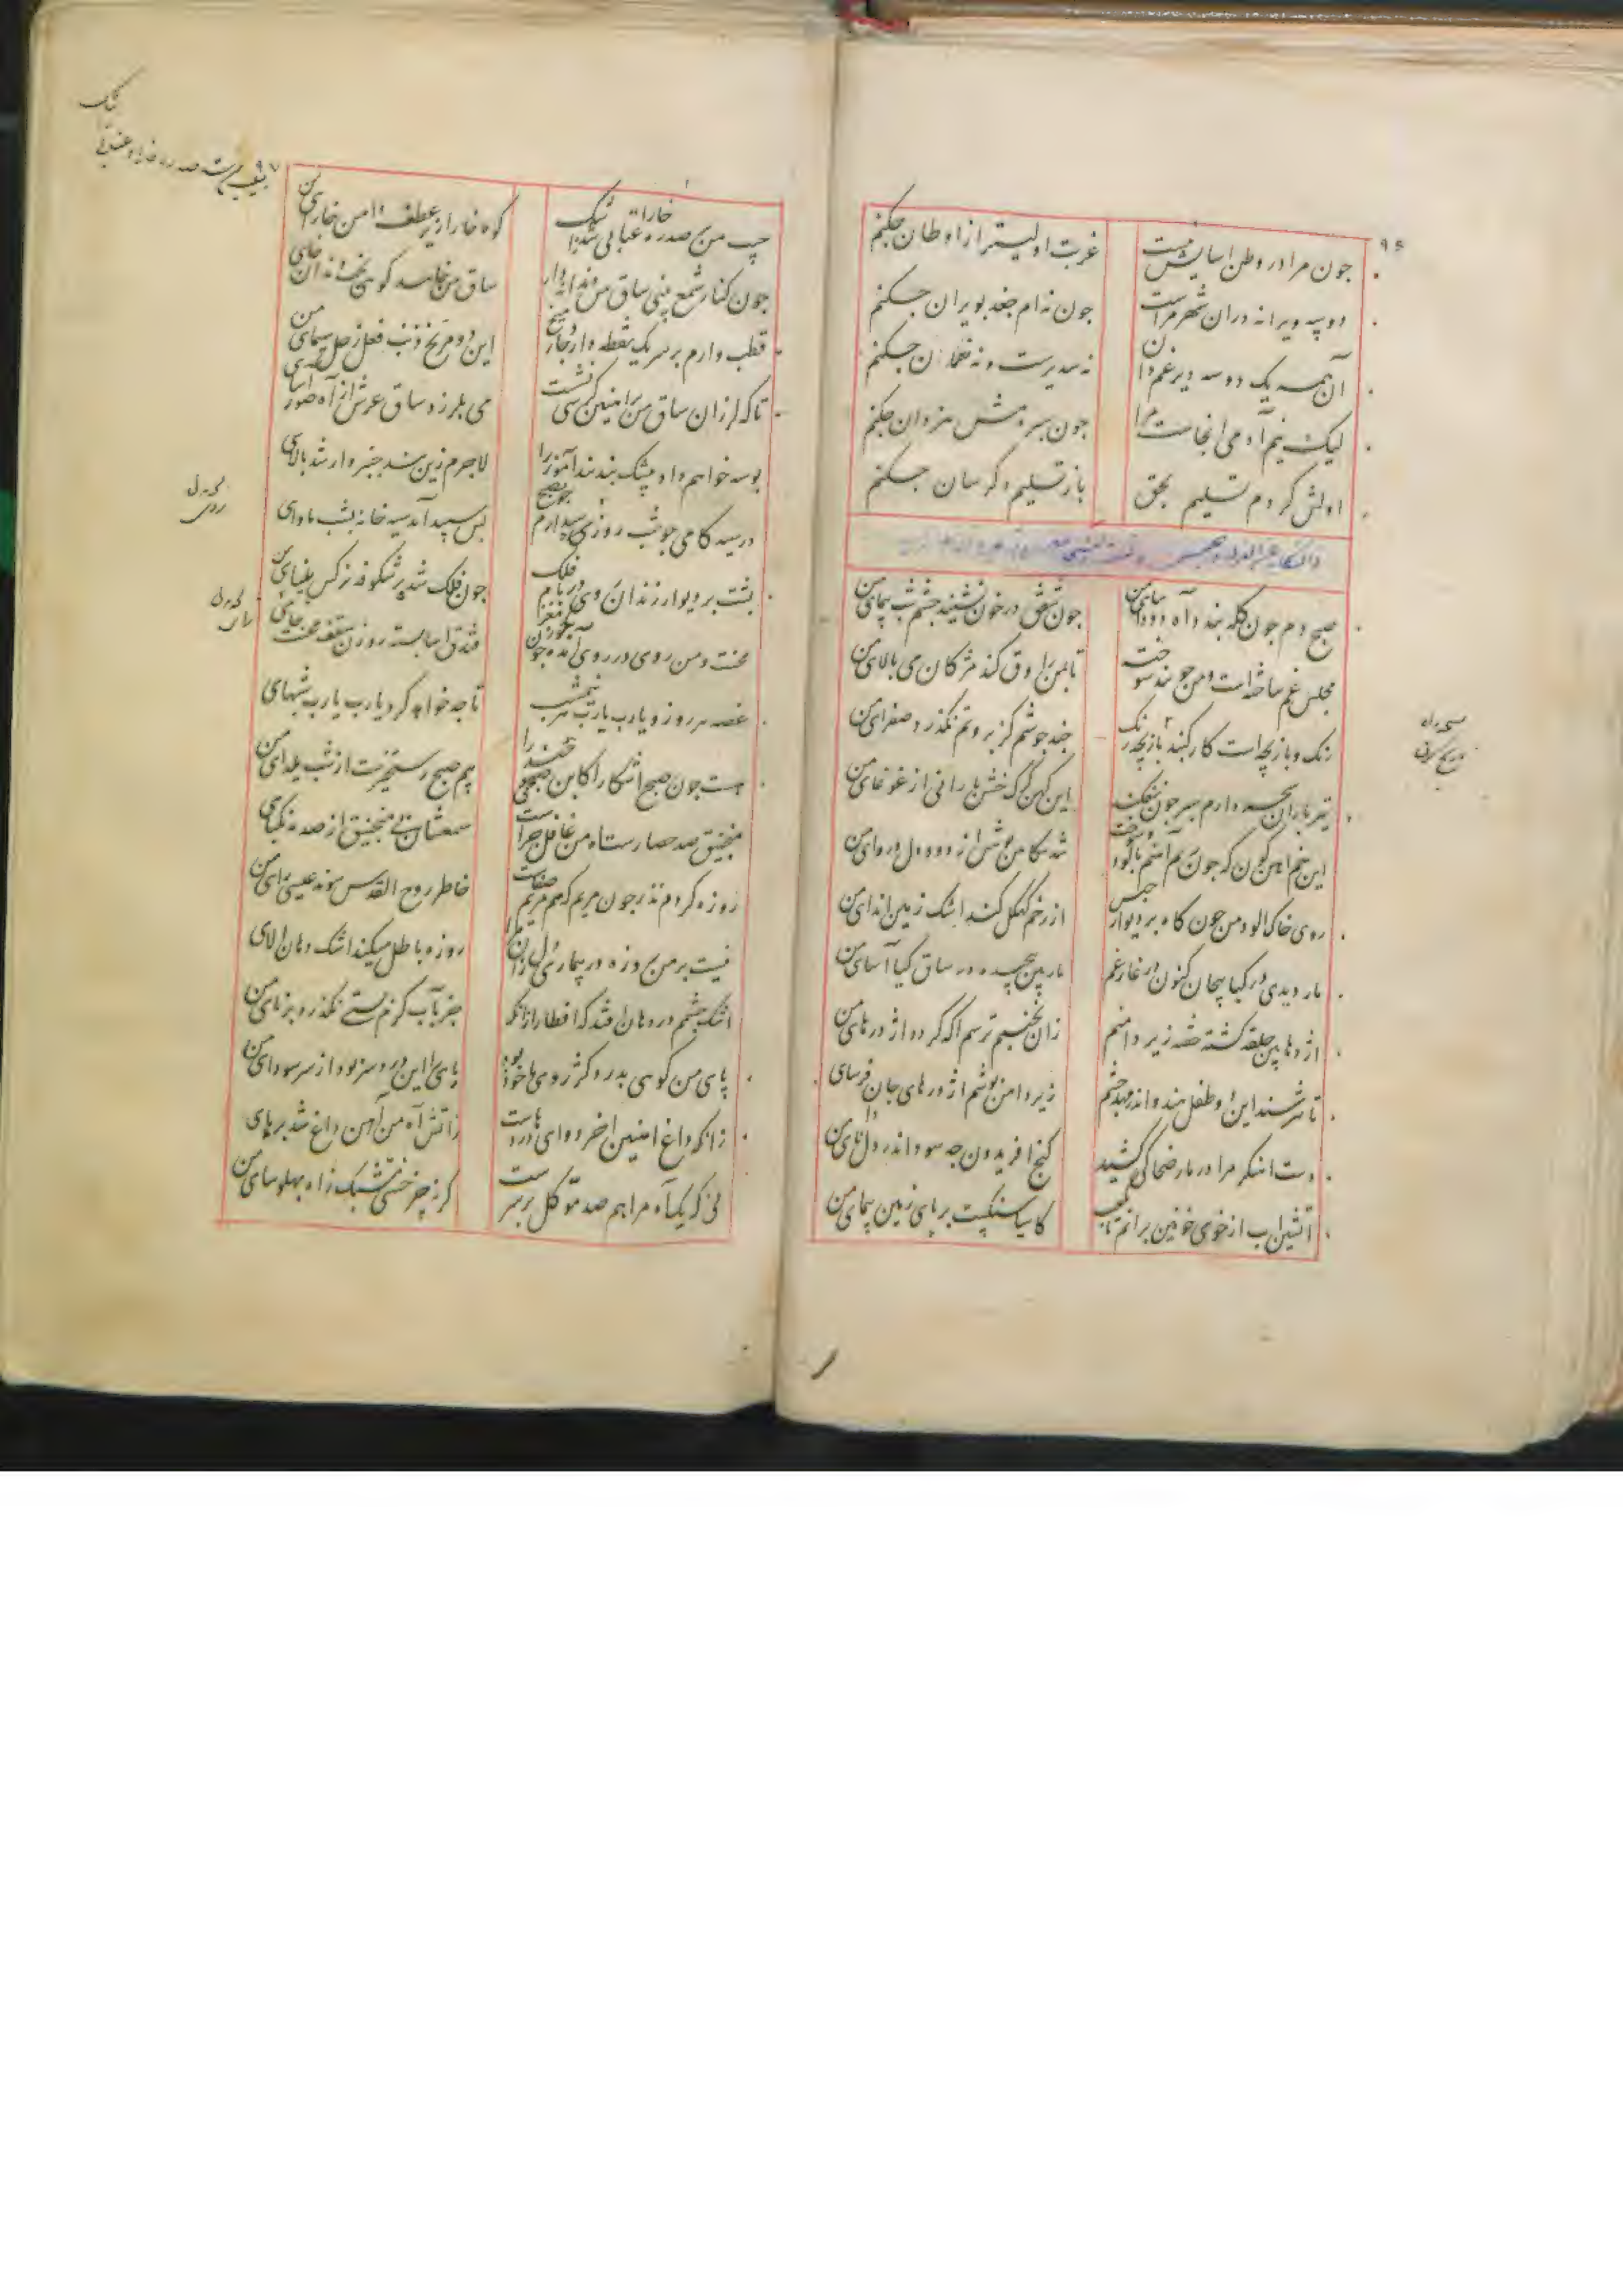 ۹۶
جون مرا در وطن اسایش نیست غربت اولیتر از اوطان جکنم
دو سه ویرانه دران شهر مراست جون نه ام جغد بویران جکنم
آن همه یک دو سه دیر غم دان نه سدیرست و نه نعمان جکنم
لیک نیم آدمی انجاست مرا جون سر و مش من و ان جکنم
اولش کردم تسلیم بحق باز تسلیم دکر سان جکنم
صبح دم جون کله بندد آه دود اسای من جون شفق در خون نشیند جشم شب پیمای من
مجلس غم ساخته است و من جو بید سوخته تا بمن راوق کند مژکان می بالای من
رنک و بازیچه است کار کنبد بازیچه رنک جند جوشم کز بروتم نکذرد صفرای من
تیر باران سحر دارم سپر جون نفکند این کهن کرک خشن بارانی از غوغای من
این خم اهن کون که جون ریم آهنم بالود و سوخت شد سکاهن پوشش از دود دل دروای من
روی خاک الود من جون کاه بر دیوار حبس از رخم کهکل کند اشک زمین اندای من
مار دیدی در کیا پیچان کنون در غار غم مار بین پیچیده در ساق کیا آسای من
اژدها بین حلقه کشته خفته زیر دامنم زان نجنبم ترسم اکه کردد اژدرهای من
تا نترسند این دو طفل هندو اندر مهد جشم زیر دامن پوشم اژدرهای جان فرسای
دست اهنکر مرا در مار ضحاکی کشید کنج افریدون جه سود اندر دل دانای من
اتشین اب از خوی خونین برانم تا بکعب کاسیا سنکیست بر پای زمین پیمای من
۹۷
جیب من بر صدره خارا عتابی شد ز اشک کوه خارا زیر عطف دامن خارای من
جون کنار شمع بینی ساق من دندانه دار ساق من خایید کوئی بند دندان خای
قطب وارم بر سر یک نقطه دارد چار میخ این دو مریخ ذنب فعل زحل سیمای من
تا که لرزان ساق من بر اهنین کرسی نشست می بلرزد ساق عرش از آه صور اوای
بوسه خواهم داد ویحک بند پند آموز را لاجرم زین بند چنبروار شد بالای
در سیه کامی جو شب روی سپید ارم جو صبح بس سپید آید سیه خانه بشب ماوای
پشت بر دیوار زندان روی بر بام فلک جون فلک شد پر شکوفه نرکس بینای من
محنت و من روی در روی آمده جون جوز مغز فندق اسا بسته روزن سقف محنت جای
غصه هر روز و یارب یارب هر نیمشب تا جه خواهد کرد یارب یارب شبهای
هست جون صبح اشکارا کاین صبوحی چند را بیم صبح رستخیزست از شب یلدای من
منجنیق صد حصارست آه من غافل جراست شمعشان بی منجنیق از صدمه نکبای
روزه کردم نذر جون مریم که هم مریم صفاست خاطر روح القدس پیوند عیسی زای من
نیست بر من روزه در بیماری دل زان مرا روزه باطل میکند اشک دهان الای
اشک جشمم در دهان افتد که افطار از انک جز که آب کرم بستی نکذرد بر نای من
پای من کوئی بدرد کژ روی ماخوذ بود پای را این درد سر بود از سر سودای من
زانکه داغ اهنین اخر دوای دردهاست زاتش آه من آهن داغ شد بر پای
نی که یک آه مرا هم صد موکل بر سرست کرنه چرخستی مشبک زاه پهلوسای من